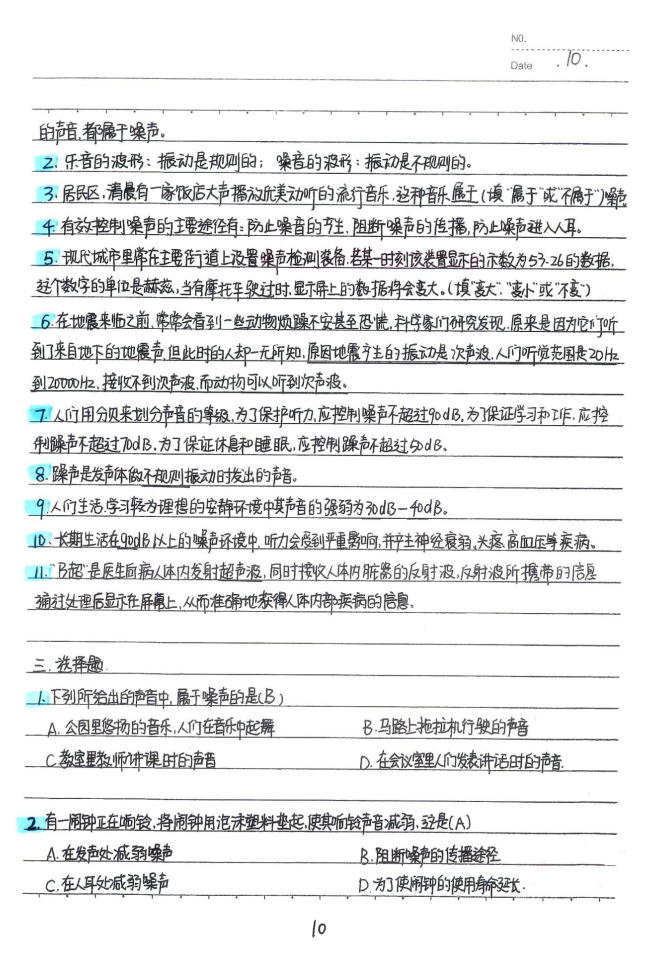 NO.
Date . 10 .
的声音,都属于噪声。
2. 乐音的波形:振动是规则的;噪音的波形:振动是不规则的。
3. 居民区,清晨有一家饭店大声播放优美动听的流行音乐,这种音乐属于(填"属于"或"不属于")噪声
4. 有效控制噪声的主要途径有:防止噪音的产生,阻断噪声的传播,防止噪声进入人耳。
5. 现代城市里常在主要街道上设置噪声检测装备,若某一时刻该装置显示的示数为53.26的数据,
这个数字的单位是赫兹,当有摩托车驶过时,显示屏上的数据将会变大。(填"变大""变小"或"不变")
6. 在地震来临之前,常常会看到一些动物烦躁不安甚至恐慌,科学家们研究发现,原来是因为它们听
到了来自地下的地震声,但此时的人却一无所知,原因地震产生的振动是次声波,人们听觉范围是20Hz
到20000Hz,接收不到次声波,而动物可以听到次声波。
7. 人们用分贝来划分声音的等级,为了保护听力,应控制噪声不超过90dB,为了保证学习和工作,应控
制噪声不超过70dB,为了保证休息和睡眠,应控制噪声不超过50dB。
8. 噪声是发声体做不规则振动时发出的声音。
9. 人们生活,学习较为理想的安静环境中其声音的强弱为30dB-40dB。
10. 长期生活在90dB以上的噪声环境中,听力会受到严重影响,并产生神经衰弱、头疼、高血压等疾病。
11. "B超"是医生向病人体内发射超声波,同时接收人体内脏器的反射波,反射波所携带的信息
通过处理后显示在屏幕上,从而准确地获得人体内部疾病的信息。
三. 选择题
1. 下列所给出的声音中,属于噪声的是(B)
A. 公园里悠扬的音乐,人们在音乐中起舞 B. 马路上拖拉机行驶的声音
C. 教室里教师讲课时的声音 D. 在会议室里人们发表讲话时的声音.
2. 有一闹钟正在响铃,将闹钟用泡沫塑料垫起,使其响铃声音减弱,这是(A)
A. 在发声处减弱噪声 B. 阻断噪声的传播途径
C. 在人耳处减弱噪声 D. 为了使闹钟的使用寿命延长.
10